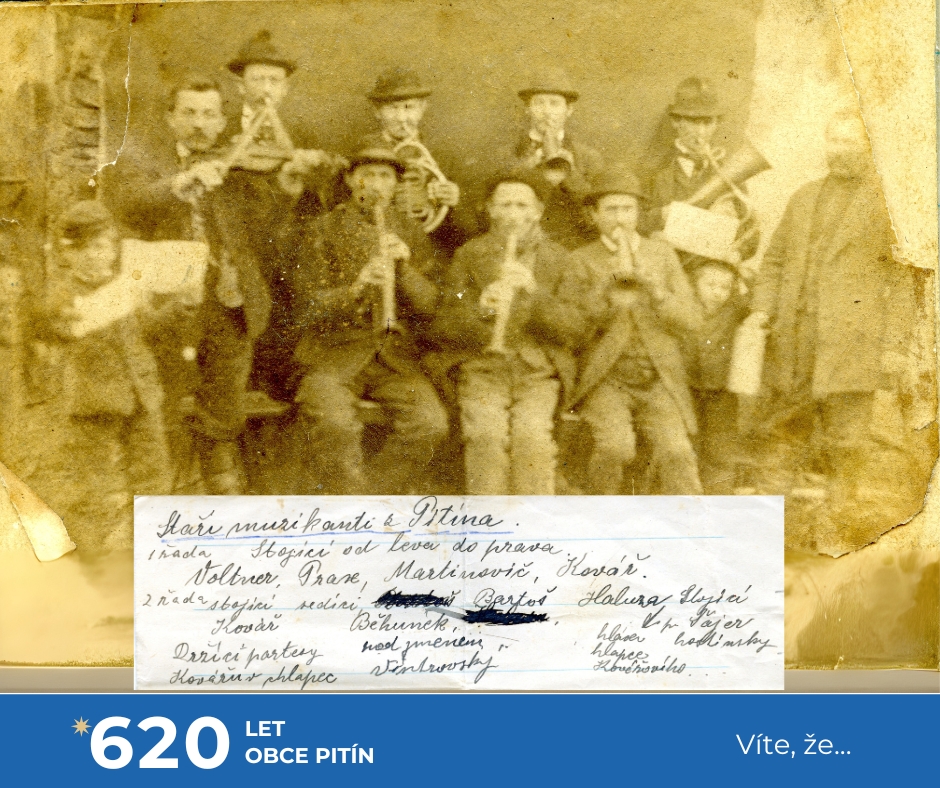 Staří muzikanti z Pitína.
1 řada Stojící od leva do prava
Voltner, Prax, Martinovič, Kovář.
2 řada stojící sedící, Bartoš Haluza Stojící
Kovář Běhunek, p. Šájer
Držící partesy nad jménem " hlásný hostinský
Kovářův chlapec Vintrovský chlapec
Kovářového...
620 LET
OBCE PITÍN
Víte, že...